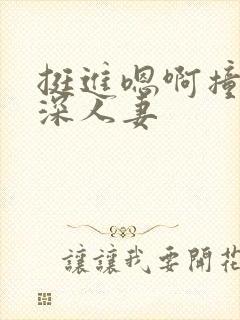 挺进嗯啊撞
深人妻
讓讓我要開花